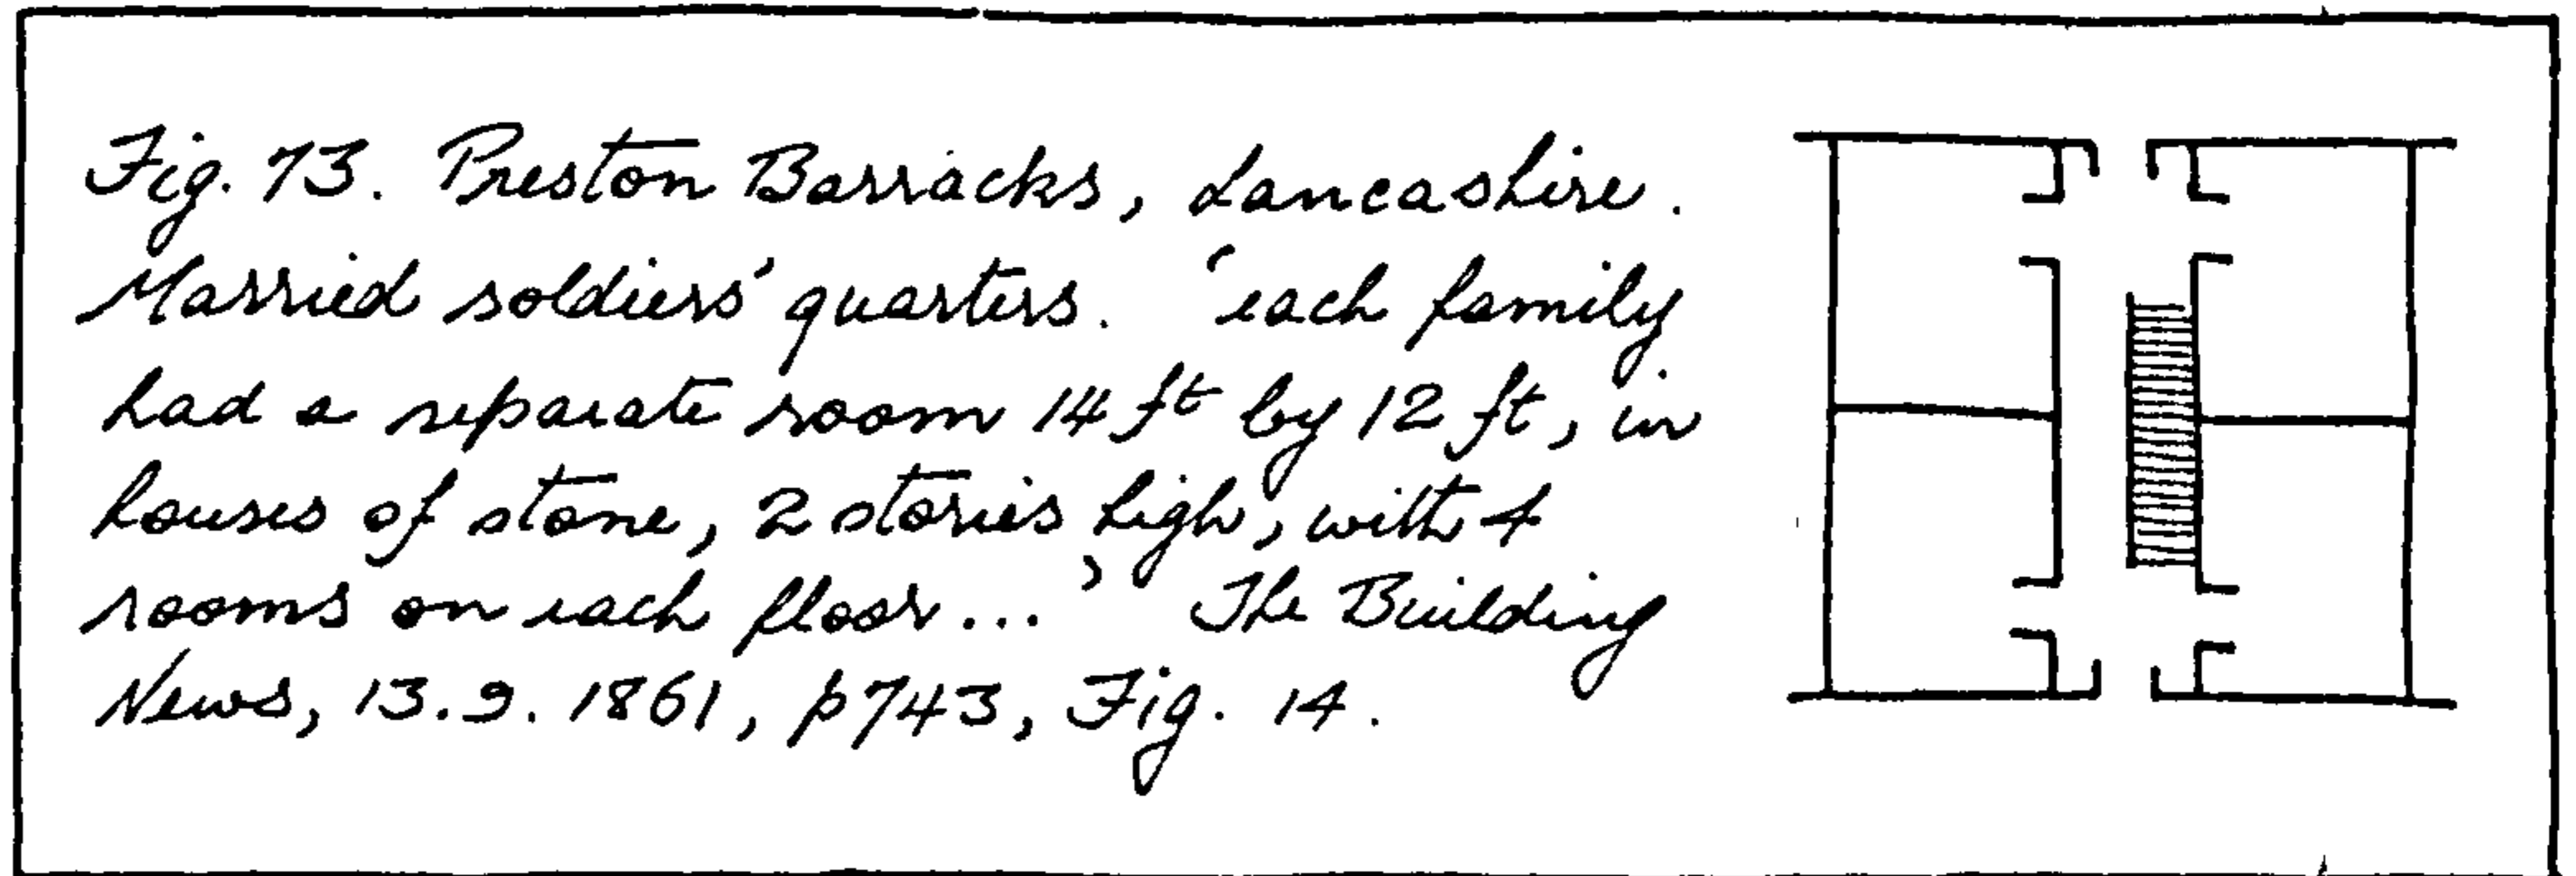 Fig. 73. Preston Barracks, Lancashire.
Married soldiers' quarters. 'each family
had a separate room 14 ft by 12 ft, in
houses of stone, 2 stories high, with 4
rooms on each floor...' The Building
News, 13.9.1861, p743, Fig. 14.